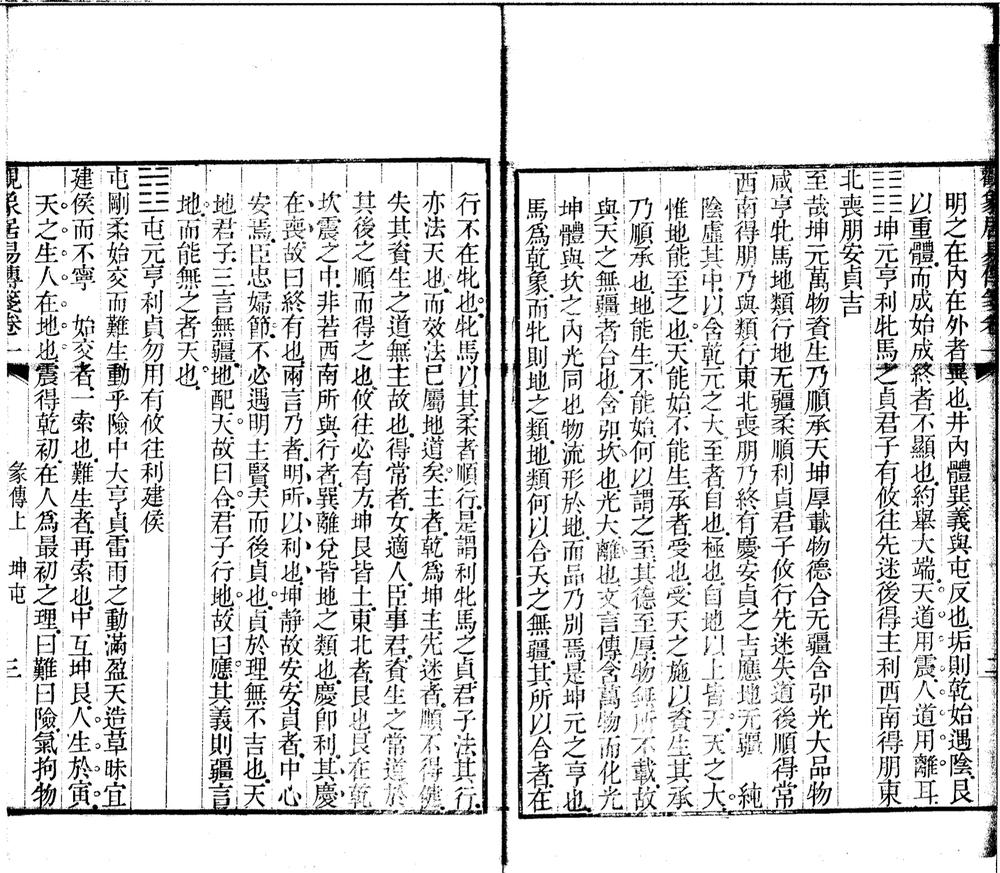 明之在內在外者異也井內體巽義與屯反也垢則乾始遇陰艮
以重體而成始成終者不顯也約舉大端天道用震人道用離耳
☷☷坤元亨利牝馬之貞君子有攸往先迷後得主利西南得朋東
北喪朋安貞吉
至哉坤元萬物資生乃順承天坤厚載物德合无疆含弘光大品物
咸亨牝馬地類行地无疆柔順利貞君子攸行先迷失道後順得常
西南得朋乃與類行東北喪朋乃終有慶安貞之吉應地无疆 純
陰虛其中以含乾元之大至者自也極也自地以上皆天天之大
惟地能至之也天能始不能生承者受也受天之施以資生其承
乃順承也地能生不能始何以謂之至其德至厚物無所不載故
與天之無疆者合也含弘坎也光大離也文言傳含萬物而化光
坤體與坎之內光同也物流形於地而品乃別焉是坤元之亨也
馬爲乾象而牝則地之類地類何以合天之無疆其所以合者在
行不在牝也牝馬以其柔者順行是謂利牝馬之貞君子法其行
亦法天也而效法已屬地道矣主者乾爲坤主先迷者順不得健
失其資生之道無主故也得常者女適人臣事君資生之常道於
其後之順而得之也攸往必有方坤艮皆土東北者艮也艮在乾
坎震之中非若西南所與行者巽離兌皆地之類也慶卽利其慶
在喪故曰終有也兩言乃者明所以利也坤靜故安安貞者中心
安焉臣忠婦節不必遇明主賢夫而後貞也貞於理無不吉也天
地君子三言無疆地配天故曰合君子行地故曰應其義則疆言
地而能無之者天也
☵☳屯元亨利貞勿用有攸往利建侯
屯剛柔始交而難生動乎險中大亨貞雷雨之動滿盈天造草昧宜
建侯而不寧 始交者一索也難生者再索也中互坤艮人生於寅
天之生人在地也震得乾初在人爲最初之理曰難曰險氣拘物
觀象居易傳箋卷一 彖傳上 坤屯 三